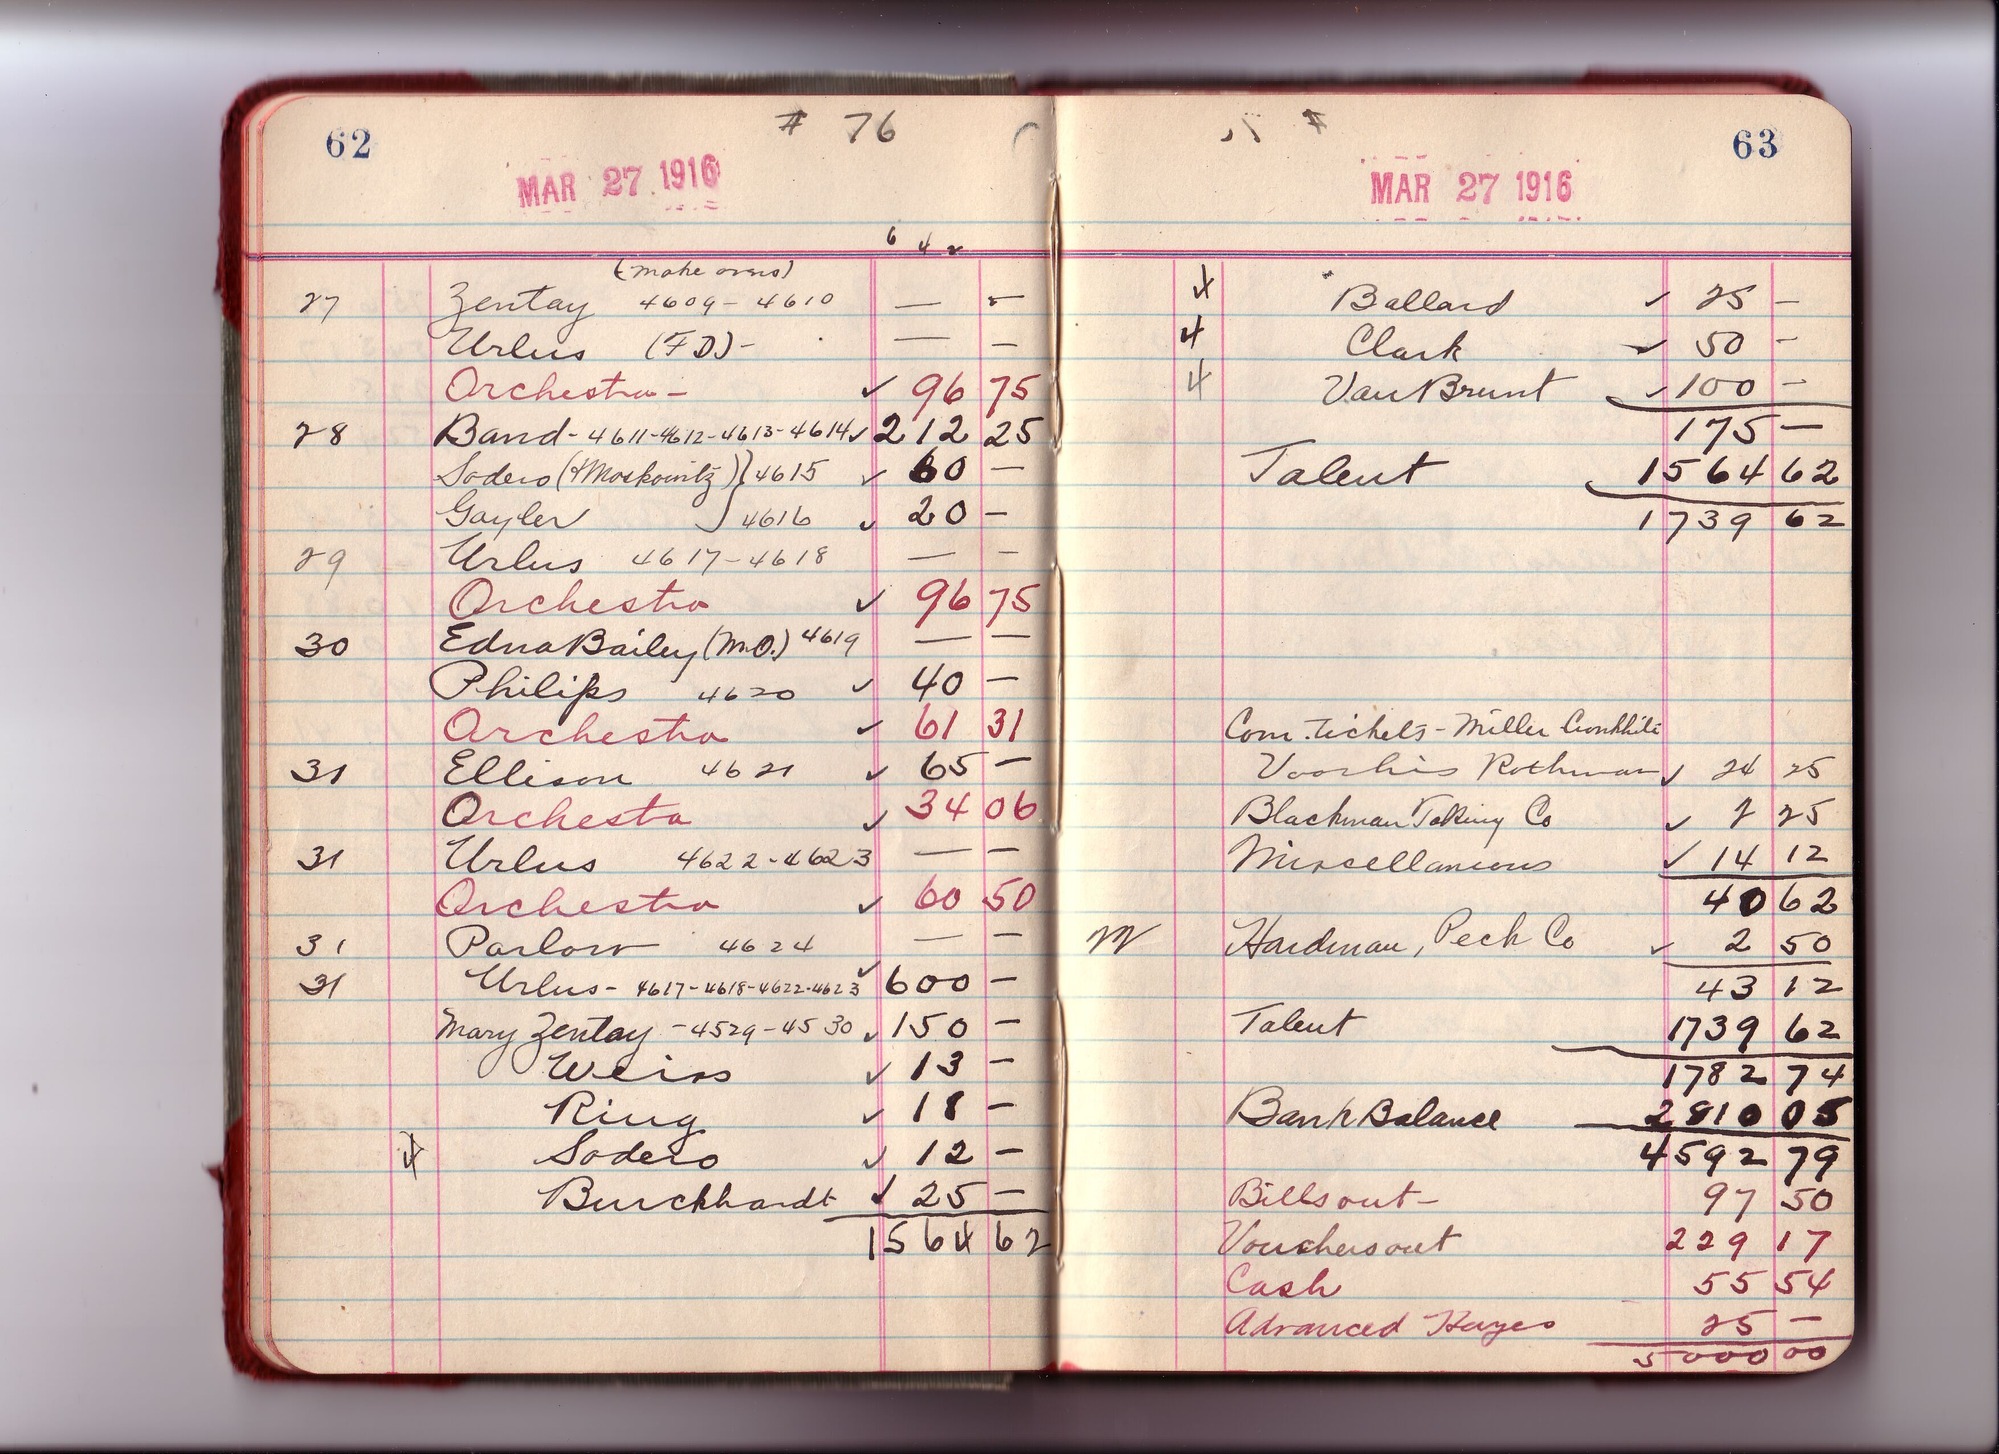 62
# 76
MAR 27 1916
6 4 2
(make overs)
27 Zentay 4609-4610 — —
Urlus (FD)- — —
Orchestra- ✓ 96 75
28 Band-4611-4612-4613-4614 ✓ 212 25
Sodero (& Moskowitz) } 4615 ✓ 60 —
Gayler 4616 ✓ 20 —
29 Urlus 4617-4618 — —
Orchestra ✓ 96 75
30 Edna Bailey (M.O.) 4619 — —
Philips 4620 ✓ 40 —
Orchestra ✓ 61 31
31 Ellison 4621 ✓ 65 —
Orchestra ✓ 34 06
31 Urlus 4622-4623 — —
Orchestra ✓ 60 50
31 Parlow 4624 — —
31 Urlus- 4617-4618-4622-4623 ✓ 600 —
Mary Zentay -4529-4530 ✓ 150 —
Weiss ✓ 13 —
Ring ✓ 18 —
4 Sodero ✓ 12 —
Burckhardt ✓ 25 —
1564 62
63
#
MAR 27 1916
4 Ballard ✓ 25 —
4 Clark ✓ 50 —
4 Van Brunt ✓ 100 —
175 —
Talent 1564 62
1739 62
Com. tickets - Miller Cronkhite
Voorhis Rothman ✓ 24 25
Blackman Talking Co ✓ 2 25
Miscellaneous ✓ 14 12
40 62
M Hardman, Peck Co ✓ 2 50
43 12
Talent 1739 62
1782 74
Bank Balance 2810 05
4592 79
Bills out- 97 50
Vouchers out 229 17
Cash 55 54
Advanced Hayes 25 —
5000 00